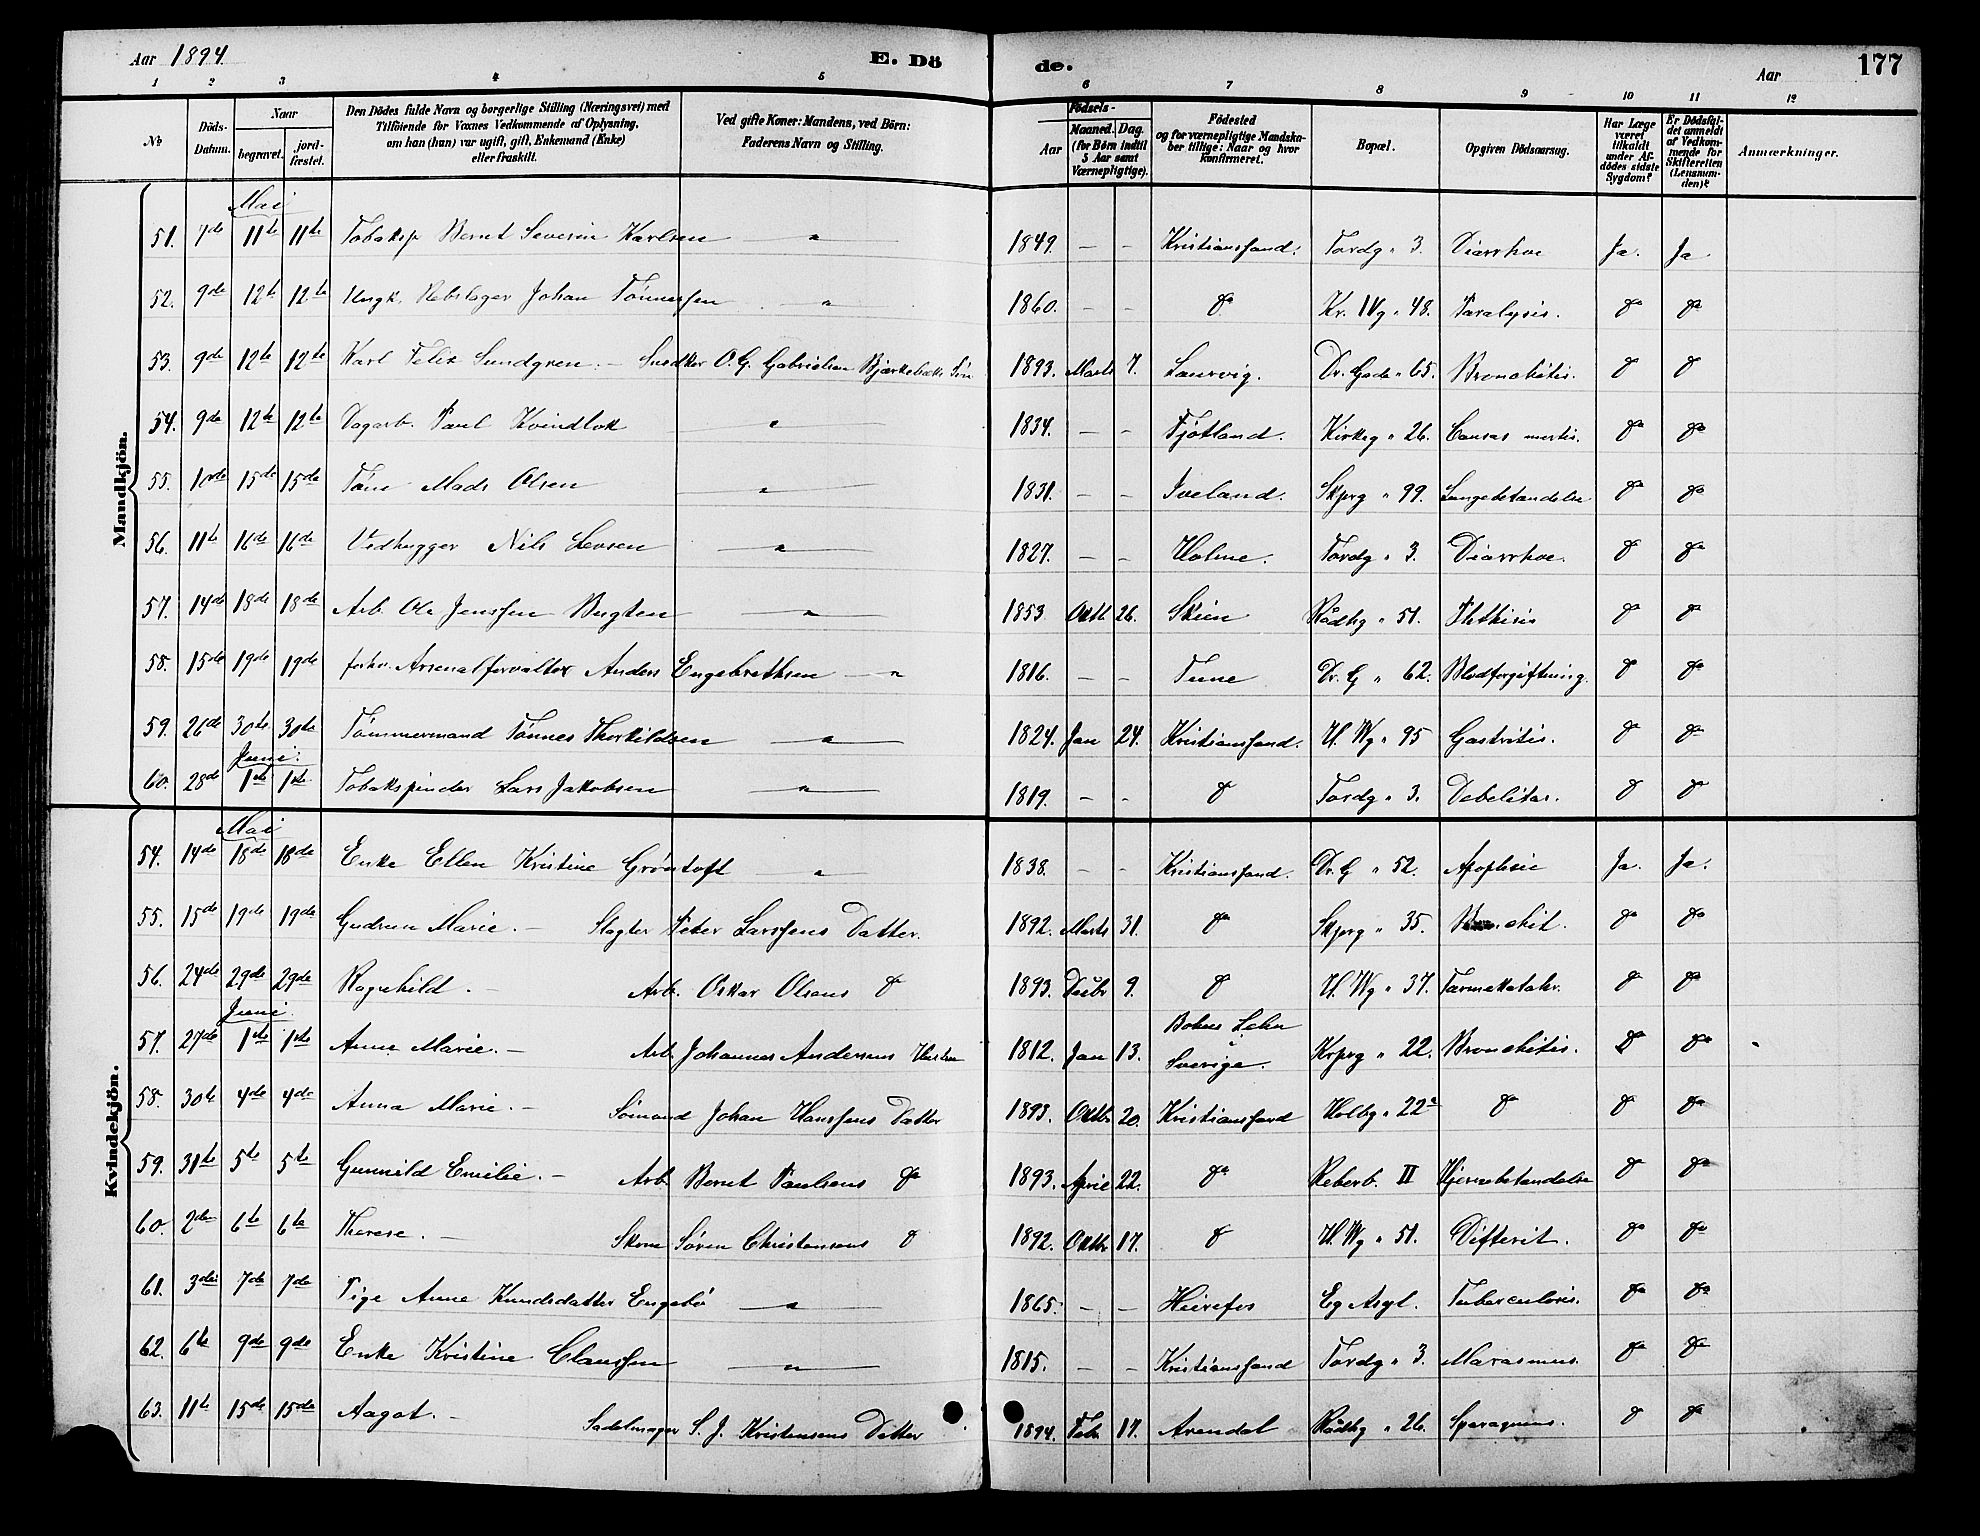 Aar 1894. E. Dö de. Aar 177
1 2 3 4 5 6 7 8 9 10 11 12
No Döds-Datum. Naar begravet. jordfæstet. Den Dödes fulde Navn og borgerlige Stilling (Næringsvei) med Tilföiende for Voxnes Vedkommende af Oplysning, om han (hun) var ugift, gift, Enkemand (Enke) eller fraskilt. Ved gifte Koner: Mandens, ved Börn: Faderens Navn og Stilling. Födsels- Aar Maaned. Dag. (for Börn indtil 5 Aar samt Værnepligtige). Födested og for værnepligtige Mandskaber tillige: Naar og hvor konfirmeret. Bopæl. Opgiven Dödsaarsag. Har Læge været tilkaldt under Afdödes sidste Sygdom? Er Dödsfaldet anmeldt af Vedkommende for Skifteretten (Lensmanden)? Anmærkninger.
Mandkjön.
Mai
51. 7de 11te 11te Tobaksp Bernt Severin Karlsen " 1849. - - Kristianssand. Tordg " 3. Diarrhoe Ja. Ja.
52. 9de 12te 12te Ungk. Rebslager Johan Tönnessen " 1860. - - do Kr. IVg " 48. Paralysis. do do
53. 9de 12te 12te Karl Felix Sundgren. - Snedker O. G. Gabrielsen Bjærkebæks Sön 1893. Marts 7. Laurvig. Dr. Gade " 65. Bronchitis. do do
54. 9de 12te 12te Dagarb. Paul Kvindlok " 1834. - - Fjotland. Kirkeg " 26. Causas mortis. do do
55. 10de 15de 15de Töm Mads Olsen " 1831. - - Iveland. Skprg " 99. Lungebetændelse do do
56. 11te 16de 16de Vedhugger Nils " 1827. - - Holme. Tordg " 3. Diarrhoe. do do
57. 14de 18de 18de Arb. Ole Jenssen Bugten " 1853 Oktb. 26. Skien Rådhg " 51. Phthisis do do
58. 15de 19de 19de forhv. Arsenalforvalter Anders Engebrethsen " 1816. - - Tune Dr. G " 62. Blodforgiftning. do do
59. 26de 30te 30te Tömmermand Tönnes Thorkildsen " 1824. Jan 24. Kristianssand. H. Wg " 95 Gastritis. do do
Juni.
60. 28de 1ste 1ste Tobakspinder Lars Jakobsen " 1819. - - do Tordg " 3. Debelitas. do do
Kvindekjön.
Mai
54. 14de 18de 18de Enke Ellen Kristine Gröntoft " 1838. - - Kristianssand. Dr. G " 52. Apoplesie Ja. Ja.
55. 15de 19de 19de Gudrun Marie. - Slagter Peter Larssens Datter. 1892. Marts 31. do Skprg " 35. do do
56. 24de 29de 29de Ragnhild. - Arb. Oskar Olsens do 1893. Decbr 9. do H. Wg " 37. Tarmekatahr. do do
Juni.
57. 27de 1ste 1ste Anne Marie. - Arb. Johannes Andersens Hustru 1812. Jan 13. Bohus Lehn i Sverige. Krprg " 22. Bronchitis. do do
58. 30te 4de 4de Anna Marie. - Sömand Johan Hanssens Datter 1893. Oktbr 20. Kristianssand Holbg " 22a do do do
59. 31te 5te 5te Gunvild Emilie. - Arb. Bernt Paulsens do 1893. April 22. do Reberb. II Hjernebetændelse do do
60. 2den 6te 6te Therese. - Skom Sören Christensens do 1892. Oktbr 17. do H. Wg " 51. Difterit. do do
61. 3die 7de 7de Pige Anne Knudsdatter Engebö " 1865. - - Eg Asyl. Tuberculosis. do do
62. 6te 9de 9de Enke Kristine Claussen " 1815. - - Kristianssand Tordg " 3. Marasmus. do do
63. 11te 15de 15de Aagot. - Sadelmager S. J. Kristensens Datter 1894. Feb. 17. Arendal Rådhg " 26. do do